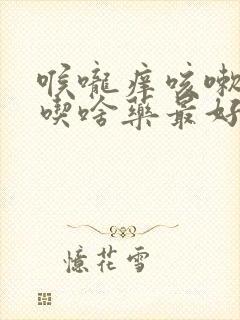 喉嚨痒咳嗽
喫啥藥最好
憶花雪